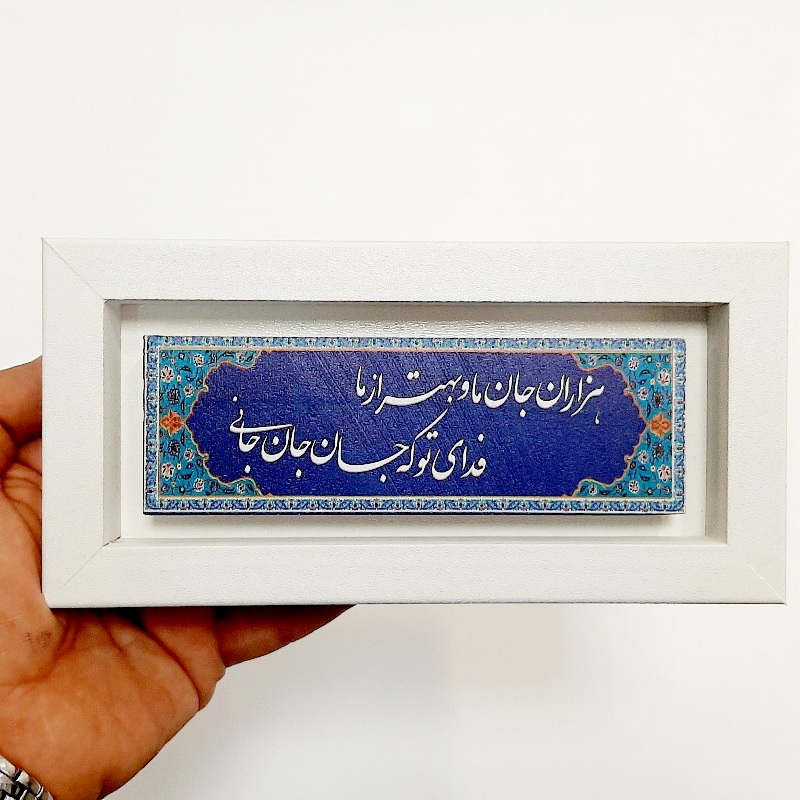 هزاران جان ما و بهتر از ما
فدای تو که جان جان جانی